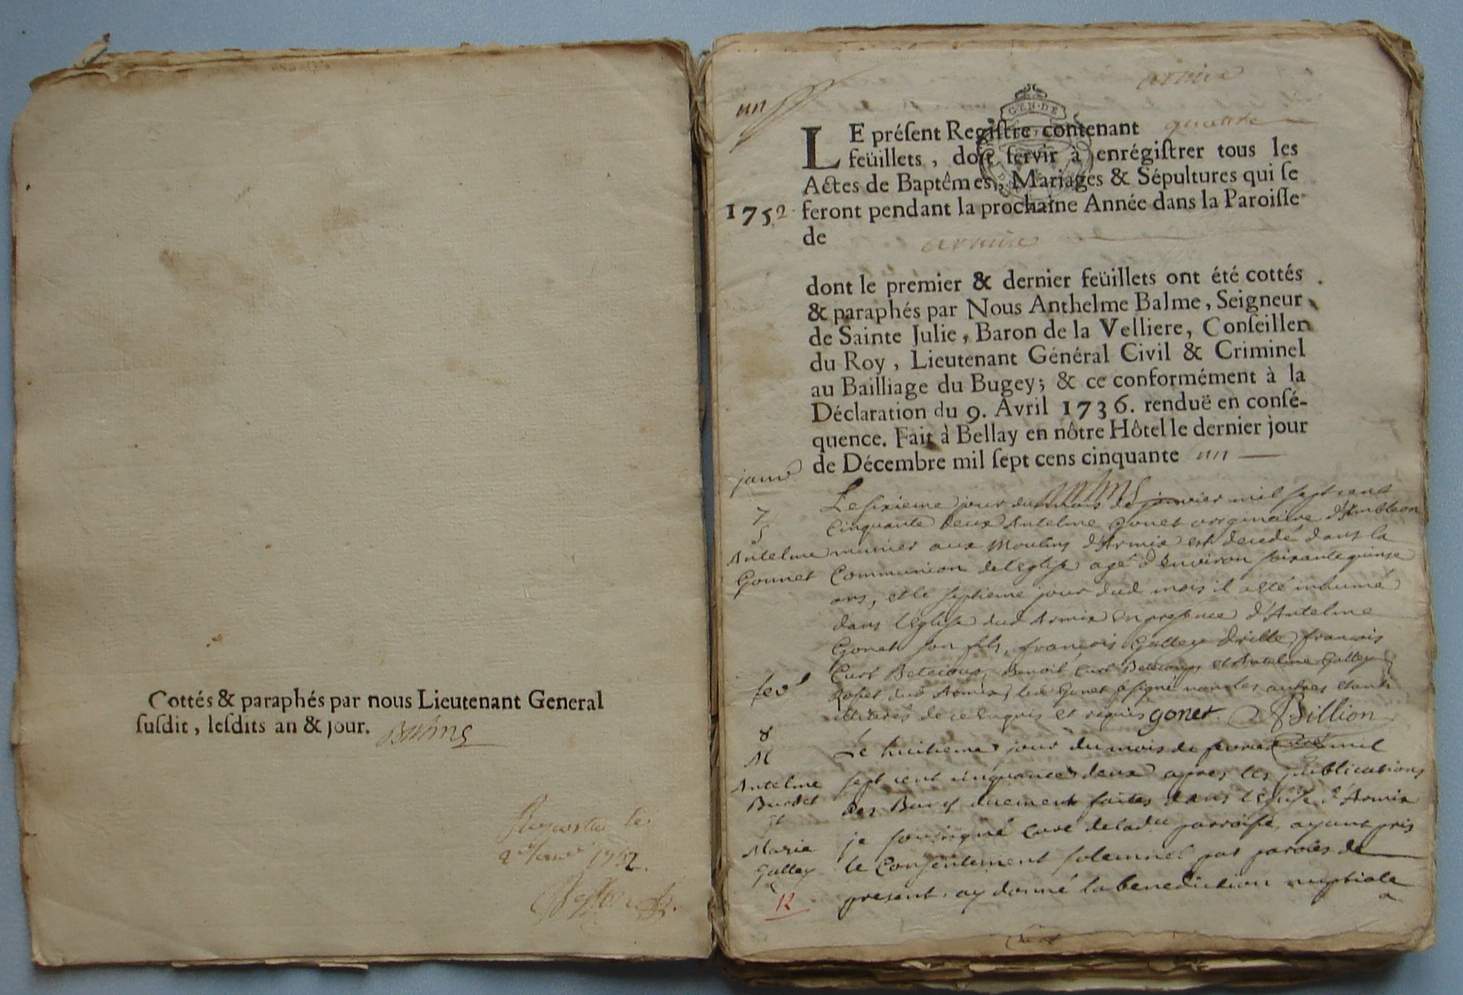 Cottés & paraphés par nous Lieutenant General
ſuſdit, leſdits an & jour.
1752.
un
GEN·DE
LE préſent Regiſtre contenant quatre
feüillets, doit ſervir à enrégiſtrer tous les
Actes de Baptêmes, Mariages & Sépultures qui ſe
1752 feront pendant la prochaine Année dans la Paroiſſe
de armix
dont le premier & dernier feüillets ont été cottés
& paraphés par Nous Anthelme Balme, Seigneur
de Sainte Julie, Baron de la Velliere, Conſeiller
du Roy, Lieutenant Général Civil & Criminel
au Bailliage du Bugey; & ce conformément à la
Déclaration du 9. Avril 1736. renduë en conſé-
quence. Fait à Bellay en nôtre Hôtel le dernier jour
de Décembre mil ſept cens cinquante un
janv
Le sixieme jour du mois de janvier mil sept cent
7
S
cinquante deux Antelme Gonet originaire d'Ambleon
Antelme
Gonnet
munier aux Moulins d'Armix est decedé dans la
Communion de l'eglise agé d'environ soixante quinse
ans, et le septieme jour dud mois il a été inhumé
dans l'Eglise dud Armix en presence d'Antelme
Gonet son fils, françois Gallex drille, francois
Curt Betecoup, Benoit Curt Betecoup et Antelme Gallex
fev
Rohet dud Armix, led Gonet a signé non les autres etants
illiterés de ce enquis et requis gonet Billion
curé
8
M
Le huitieme jour du mois de fevrier mil
Antelme
Burdet
et
sept cent cinquante deux apres les publications
des Bancs duement faites dans l'eglise d'Armix
Marie
Gallex
je soussigné curé de lad parroisse, ayant pris
le Consentement solemnel par paroles de
R
present, ay donné la benediction nuptiale
a